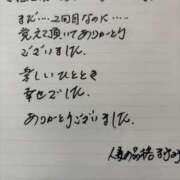 まだ…..二回目なのに….
覚えて頂いてありがとう
ございました。
楽しいひととき
幸せでした。
ありがとうございました。